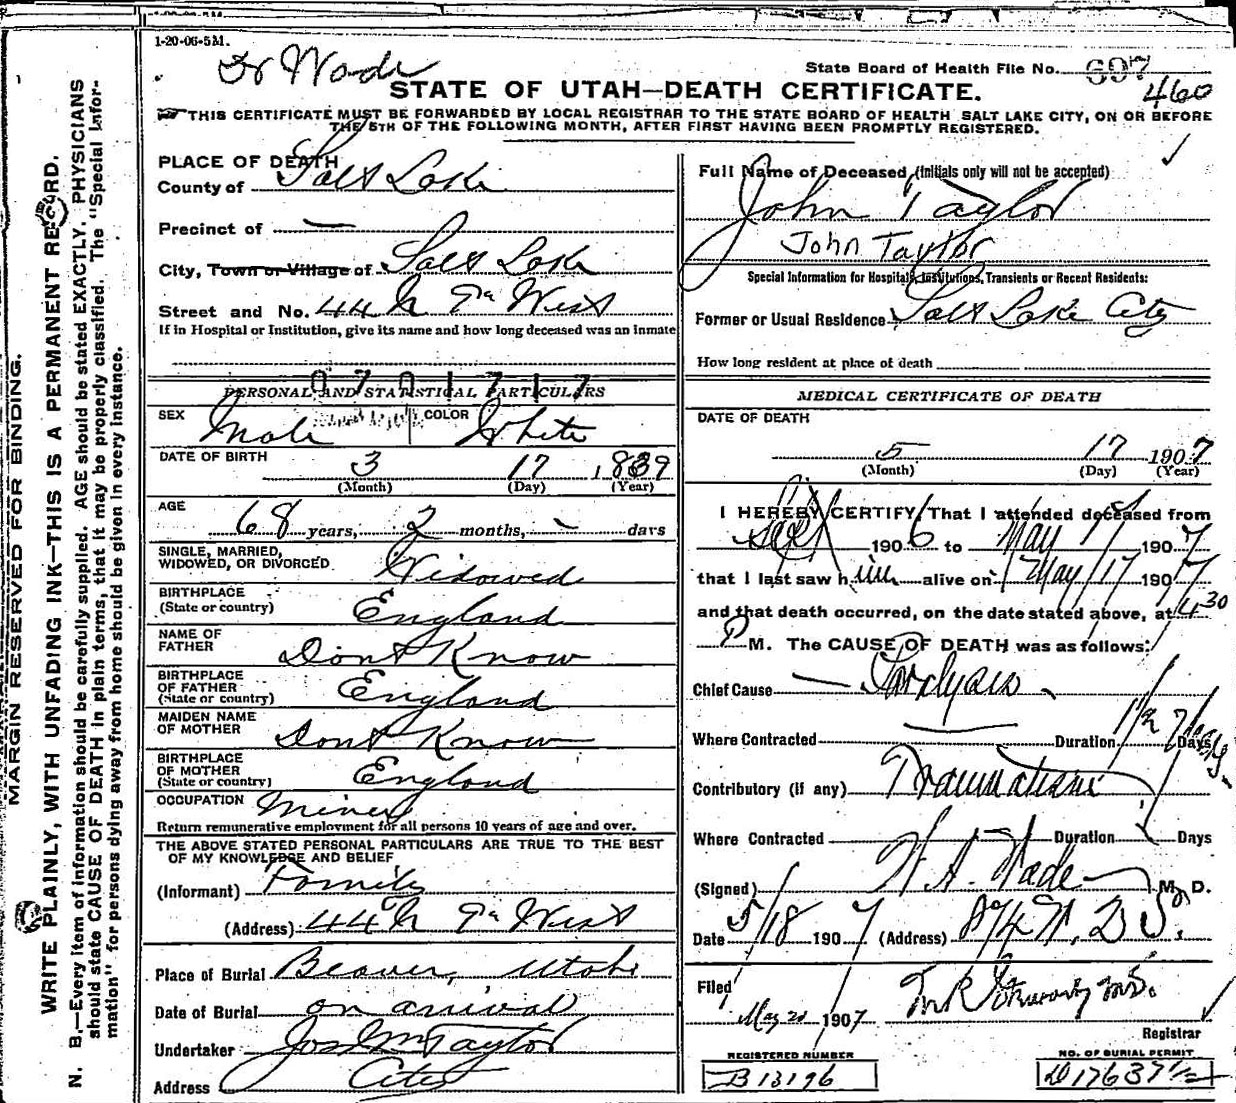 1-20-06-5M.
Dr Wade
State Board of Health File No. 697
460
STATE OF UTAH—DEATH CERTIFICATE.
THIS CERTIFICATE MUST BE FORWARDED BY LOCAL REGISTRAR TO THE STATE BOARD OF HEALTH SALT LAKE CITY, ON OR BEFORE
THE 5TH OF THE FOLLOWING MONTH, AFTER FIRST HAVING BEEN PROMPTLY REGISTERED.
MARGIN RESERVED FOR BINDING.
WRITE PLAINLY, WITH UNFADING INK—THIS IS A PERMANENT RECORD.
N. B.—Every item of information should be carefully supplied. AGE should be stated EXACTLY. PHYSICIANS
should state CAUSE OF DEATH in plain terms, that it may be properly classified. The "Special Infor-
mation" for persons dying away from home should be given in every instance.
PLACE OF DEATH
County of Salt Lake
Precinct of —
City, Town or Village of Salt Lake
Street and No. 44 N 7th West
If in Hospital or Institution, give its name and how long deceased was an inmate
PERSONAL AND STATISTICAL PARTICULARS
SEX Male COLOR White
DATE OF BIRTH 3 17 1839
(Month) (Day) (Year)
AGE 68 years, 2 months, - days
SINGLE, MARRIED,
WIDOWED, OR DIVORCED Widowed
BIRTHPLACE
(State or country) England
NAME OF
FATHER Dont Know
BIRTHPLACE
OF FATHER
(State or country) England
MAIDEN NAME
OF MOTHER Dont Know
BIRTHPLACE
OF MOTHER
(State or country) England
OCCUPATION Miner
Return remunerative employment for all persons 10 years of age and over.
THE ABOVE STATED PERSONAL PARTICULARS ARE TRUE TO THE BEST
OF MY KNOWLEDGE AND BELIEF
(Informant) Family
(Address) 44 N 7th West
Place of Burial Beaver, Utah
Date of Burial on arrival
Undertaker Jos Wm Taylor
Address City
Full Name of Deceased (Initials only will not be accepted)
John Taylor
John Taylor
Special Information for Hospitals, Institutions, Transients or Recent Residents:
Former or Usual Residence Salt Lake City
How long resident at place of death
MEDICAL CERTIFICATE OF DEATH
DATE OF DEATH
5 17 1907
(Month) (Day) (Year)
I HEREBY CERTIFY, That I attended deceased from
1906 to May 1907
that I last saw him alive on May 17 1907
and that death occurred, on the date stated above, at 4 30
P M. The CAUSE OF DEATH was as follows:
Chief Cause — Paralysis
Where Contracted Duration Days
Contributory (if any)
Where Contracted Duration Days
(Signed) Wade M. D.
Date 5/18 1907 (Address)
Filed
May 20 1907
Registrar
REGISTERED NUMBER
B 13196
NO. OF BURIAL PERMIT